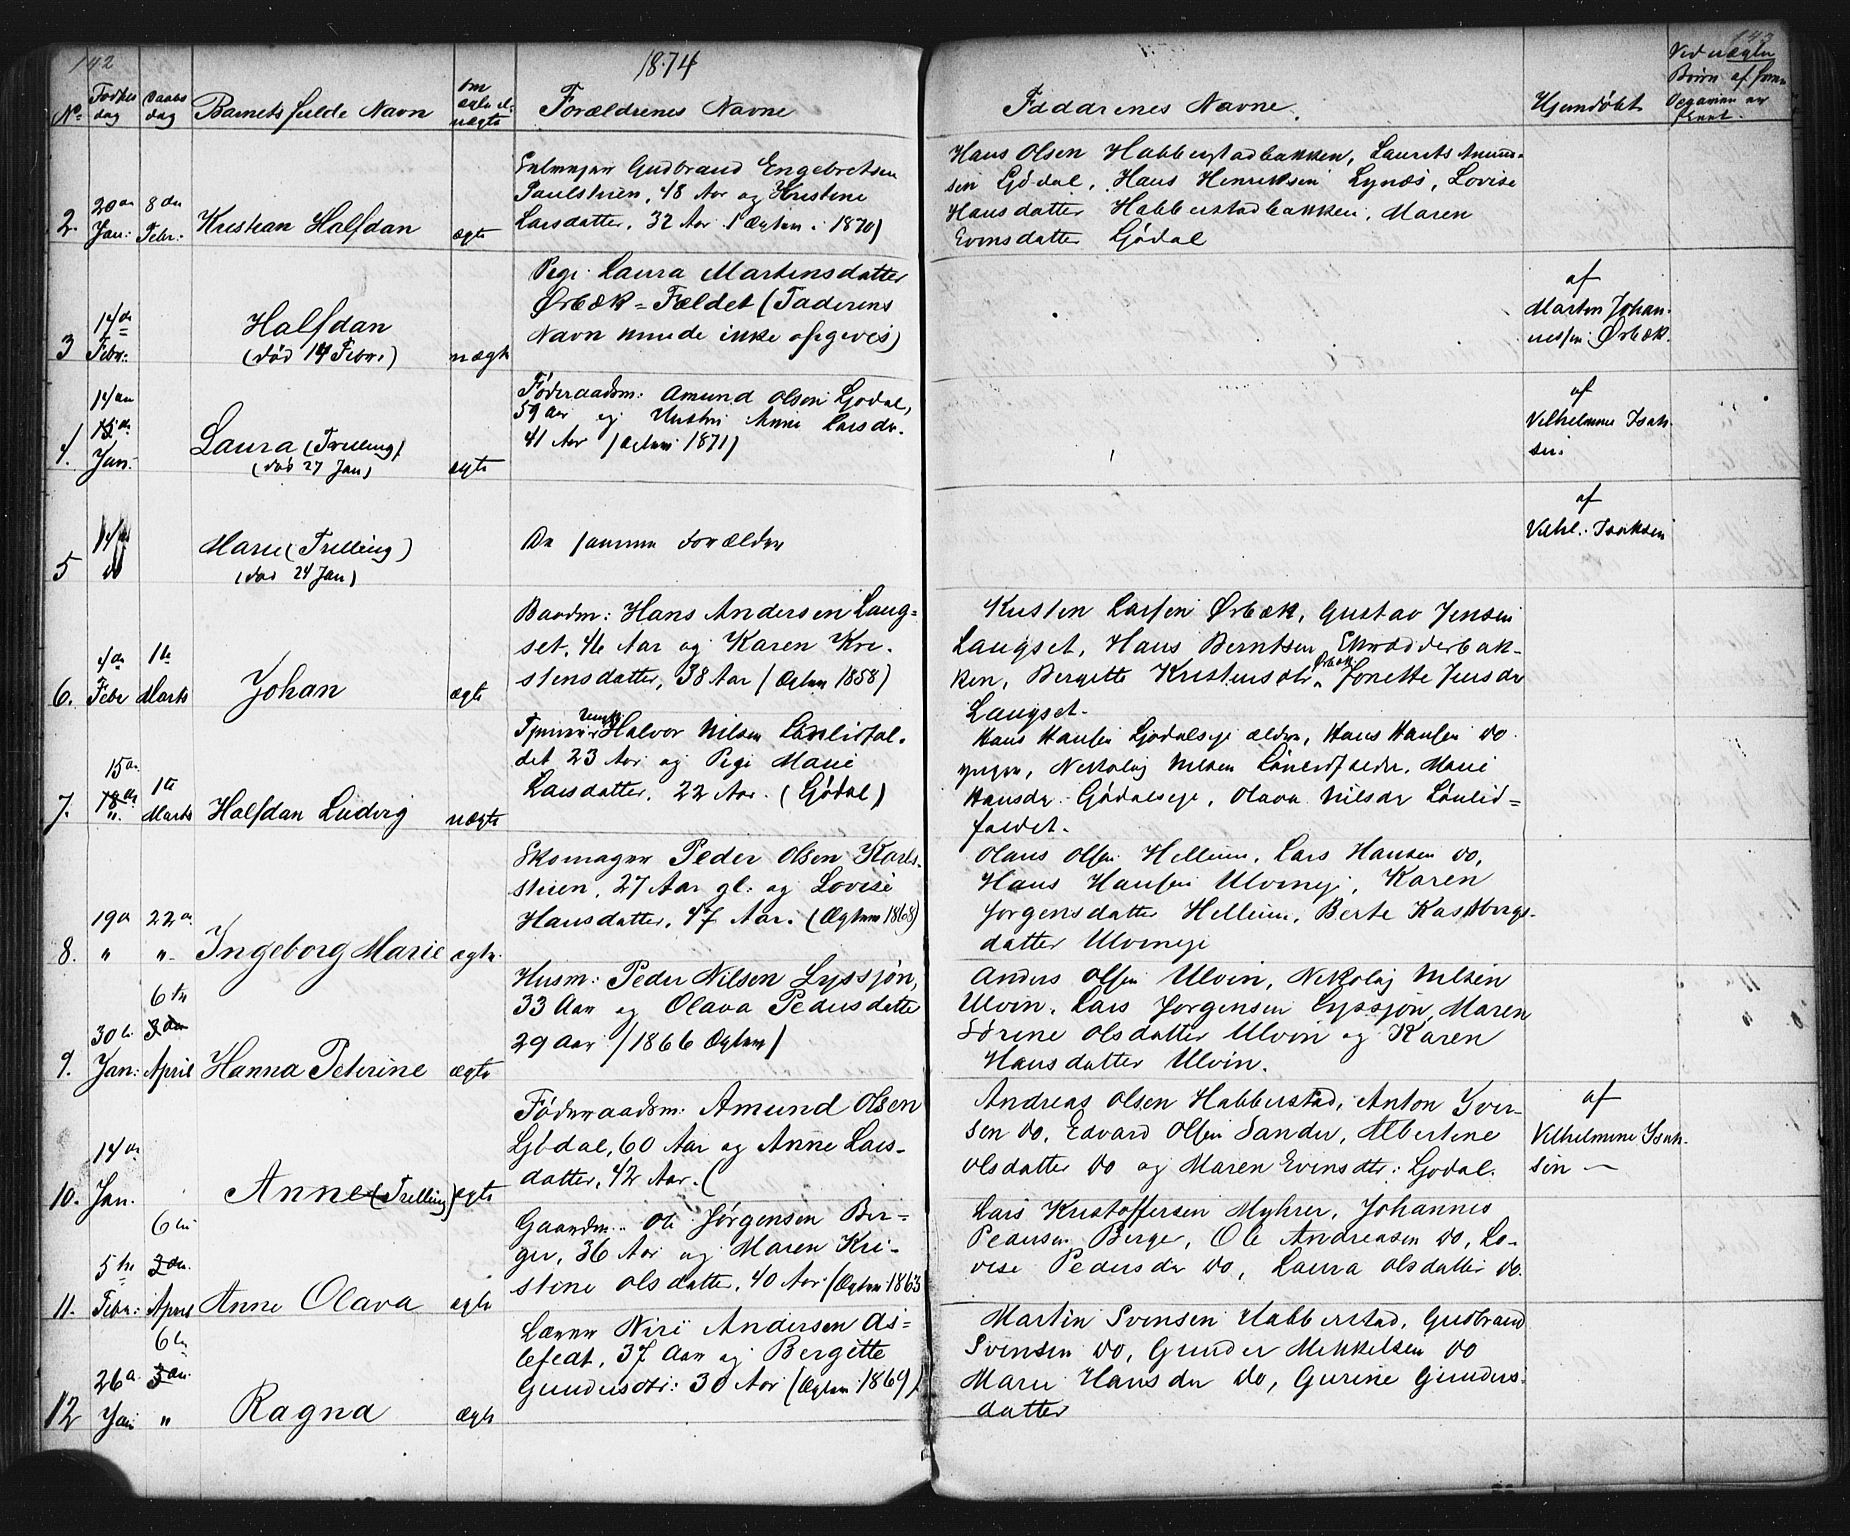 142
1874
No
Fødselsdag
Daabsdag
Barnets fulde Navn
om ægte el. uægte
Forældrenes Navne
2.
20de Jan:
8de Febr:
Kristian Halfdan
ægte
Gudbrand Engebretsen
Paulstuen, 48 Aar og Kristine
Larsdatter, 32 Aar (Ægtem. 1870)
3
14de Febr:
Halfdan
(død 14 Febr.)
uægte
Pige Laura Martinsdatter
Ørbæk-Fældet (Faderens
Navn kunde ikke opgives)
4.
14de
15de
Jan.
Laura (Trilling)
(død 27 Jan)
ægte
Føderaadsm: Amund Olsen Gjødal,
59 Aar og Hustru Anne Larsdr.
41 Aar (Ægtem 1871)
5
14de
do
Marie (Trilling)
(død 24 Jan)
De samme Forældre
6.
4de Febr
1te Marts
Johan
ægte
Baadm: Hans Andersen Laug-
set, 46 Aar og Karen Kri-
stensdatter, 38 Aar (Ægtem 1858)
7.
15de
18de
"
1te Marts
Halfdan Ludvig
uægte
Halvor Nilsen Lønlidfal-
det 23 Aar og Pige Marie
Larsdatter, 22 Aar. (Gjødal)
8.
19de
"
22de
"
Ingeborg Marie
ægte
Skomager Peder Olsen Karls-
stuen, 27 Aar gl. og Lovise
Hansdatter, 47 Aar. (Ægtem 1868)
9.
30te Jan:
6te
3die
April
Hanna Petrine
ægte
Husm: Peder Nilsen Lyssjøn,
33 Aar og Olava Pedersdatter
29 Aar (1866 Ægtem)
10.
14de Jan.
Anne (Trilling)
ægte
Føderaadsm: Amund Olsen
Gjødal, 60 Aar og Anne Lars-
datter, 42 Aar. (
11.
5te Febr:
6te
3die
April
Anne Olava
ægte
Gaardm. Ole Jørgensen Ber-
ger, 36 Aar og Maren Kri-
stine Olsdatter, 40 Aar (Ægtem 1863
12
26de Jan
6te
3die
"
Ragna
ægte
Lærer Niri Andersen As-
lefeat, 37 Aar og Bergitte
Gundersdtr: 30 Aar (Ægtem 1869)
143
Faddrenes Navne.
Hjemdøbt
Ved uægte
Børn
Hans Olsen Habberstadbakken, Laurits Amund-
sen Gjødal, Hans Henriksen Lynæs, Lovise
Hansdatter Habberstadbakken, Maren
Evensdatter Gjødal
af
Martin Johan-
nessen Ørbæk.
af
Vilhelmine Isak-
sen.
af
Vilhl: Isaksen
Kristen Larsen Ørbæk, Gustav Jensen
Laugset, Hans Berntsen Skrædderbak-
ken, Bergitte Kristensdtr Ørbæk, Jonette Jensdr
Laugset.
Hans Hansen Gjødalseje ældre, Hans Hansen do
yngre, Nikolaj Nilsen Lønlidfaldet, Marie
Hansdr. Gjødalseje, Olava Nilsdr Lønlid-
faldet.
Olaus Olsen Hellum, Lars Hansen do,
Hans Hansen Ulvineje, Karen
Jørgensdatter Hellum, Berte Kastbergs-
datter Ulvineje
Anders Olsen Ulvin, Nikolaj Nilsen
Ulvin, Lars Jørgensen Lyssjøn, Maren
Sørine Olsdatter Ulvin og Karen
Hansdatter Ulvin.
Andreas Olsen Habberstad, Anton Iver-
sen do, Edvard Olsen Sander, Albertine
Olsdatter do og Maren Evensdtr: Gjødal.
af
Vilhelmine Isak-
sen
Lars Kristoffersen Myhrer, Johannes
Pedersen Berger, Ole Andreasen do, Lo-
vise Pedersdr do, Laura Olsdatter do.
Martin Svensen Habberstad, Gudbrand
Svensen do, Gunder Mikkelsen do
Marie Hansdr do, Gurine Gunders-
datter